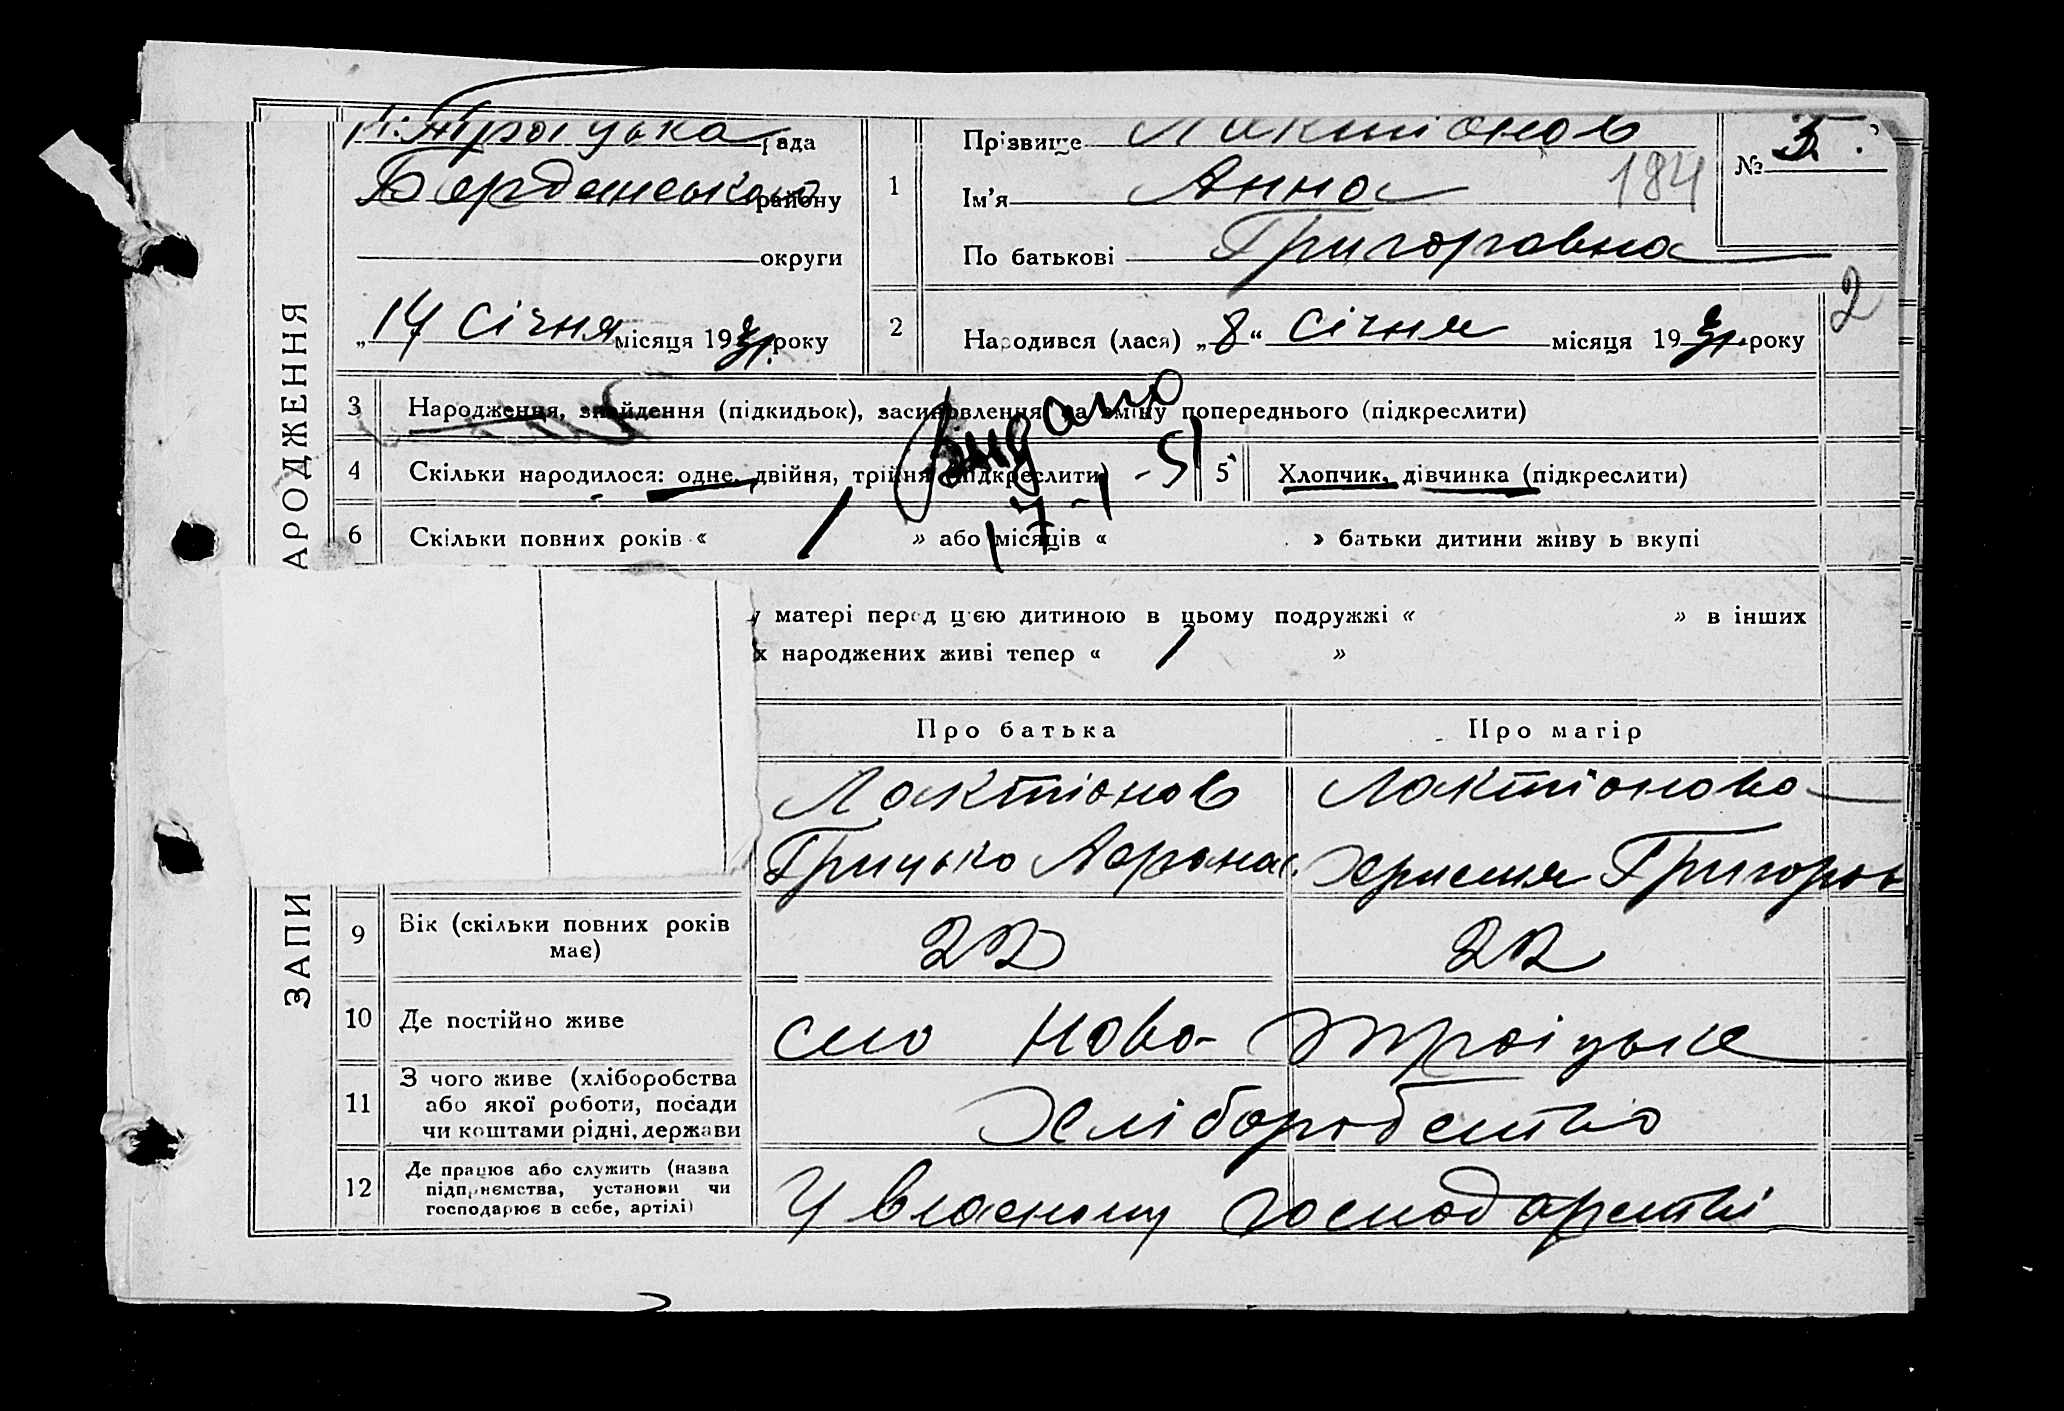 Н.Троїцька рада
Бердянського району
округи
„14 січня місяця 1931. року
1
Прізвище Лактіонов
Ім'я Анна
По батькові Григоровна
№ 5.
184
2
2
Народився (лася) „8“ січня місяця 1931. року
ЗАПИ
АРОДЖЕННЯ
3 Народження, знайдення (підкидьок), засиновлення на зміну попереднього (підкреслити)
4 Скільки народилося: одне, двійня, трійня (підкреслити)
5 Хлопчик, дівчинка (підкреслити)
Видано
17-1-51
6 Скільки повних років « » або місяців « » батьки дитини живу ь вкупі
у матері перед цією дитиною в цьому подружжі « » в інших
х народжених живі тепер « »
Про батька Про матір
Лактіонов Лактіонова
Грицько Афонас. Христя Григоров
9 Вік (скільки повних років має) 22 22
10 Де постійно живе село Ново-Троіцьке
11 З чого живе (хліборобства
або якої роботи, посади
чи коштами рідні, держави
Хліборобство
12 Де працює або служить (назва
підприємства, установи чи
господарює в себе, артілі)
У власному господарстві